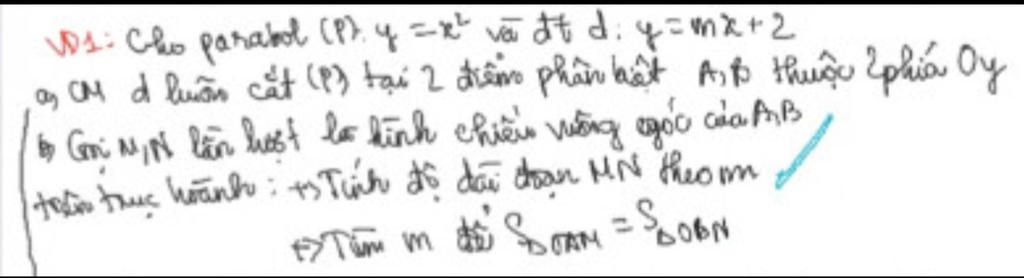 VD1: Cho parabol (P): y = x² và đt d: y = mx + 2
a, CM d luôn cắt (P) tại 2 điểm phân biệt A, B thuộc 2 phía Oy
b, Gọi M, N lần lượt là hình chiếu vuông góc của A, B
trên trục hoành: +) Tính độ dài đoạn MN theo m
+) Tìm m để S∆OAM = S∆OBN